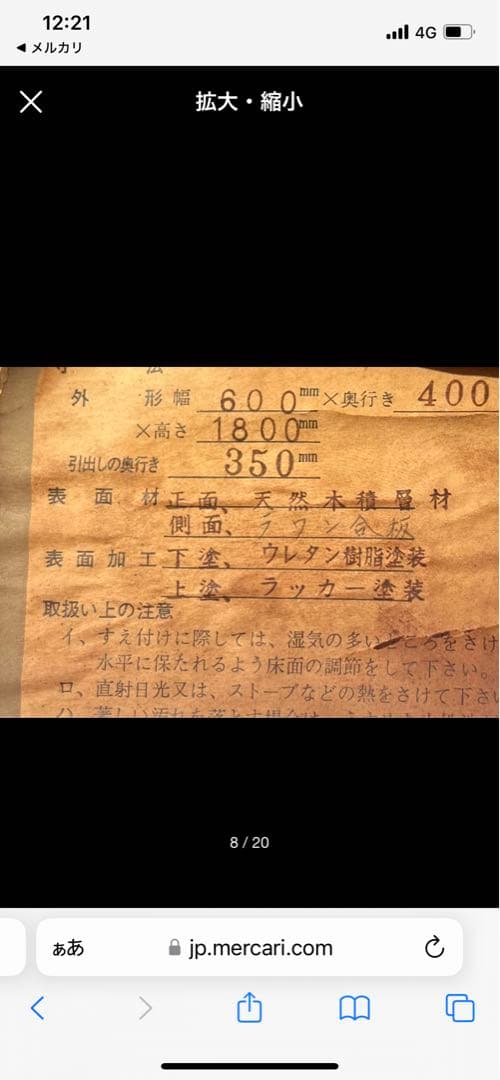 12:21
4G
◀ メルカリ
拡大・縮小
外 形 幅 600mm×奥行き 400
×高さ 1800mm
引出しの奥行き 350mm
表 面 材 正面、天然木積層材
側面、ラワン合板
表面加工 下塗、ウレタン樹脂塗装
上塗、ラッカー塗装
取扱い上の注意
イ、すえ付けに際しては、湿気の多いところをさけ
水平に保たれるよう床面の調節をして下さい。
ロ、直射日光又は、ストーブなどの熱をさけて下さい
8 / 20
ぁあ jp.mercari.com